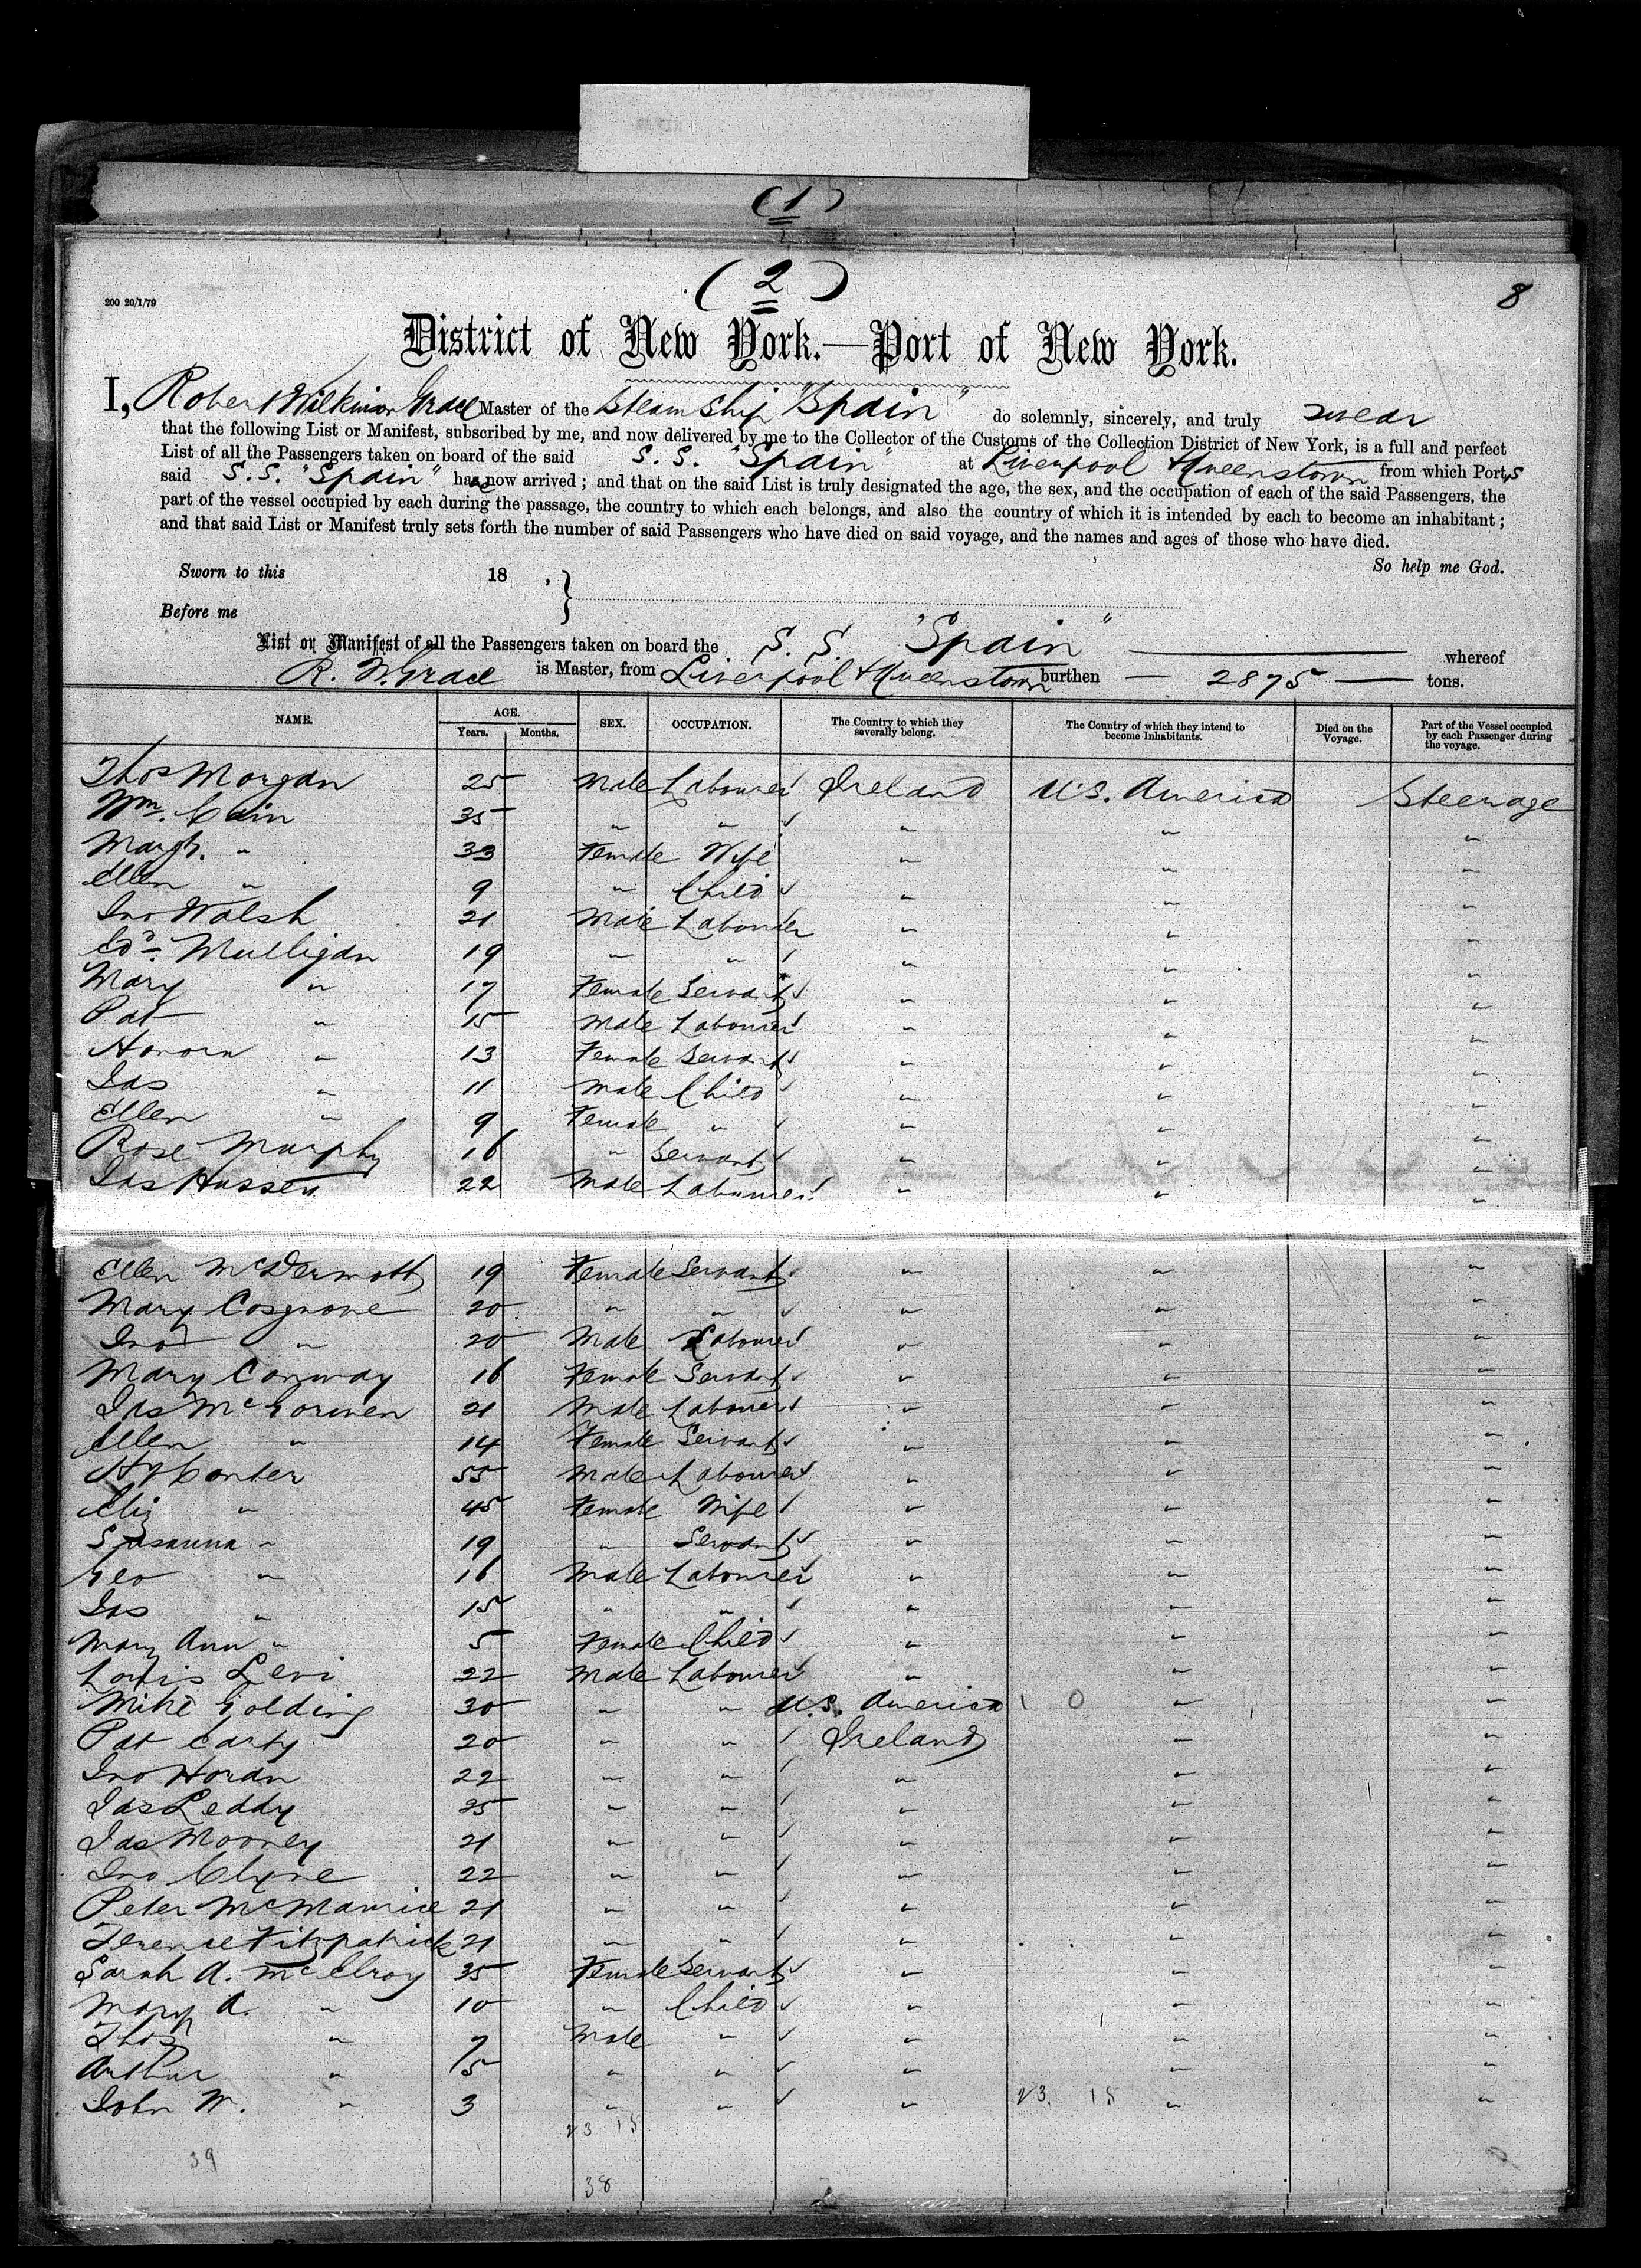 (1)
(2)
8
200 20/1/79
District of New York.—Port of New York.
I, Robert Wilkinson Grace Master of the Steam Ship "Spain" do solemnly, sincerely, and truly swear
that the following List or Manifest, subscribed by me, and now delivered by me to the Collector of the Customs of the Collection District of New York, is a full and perfect
List of all the Passengers taken on board of the said S.S. "Spain" at Liverpool & Queenstown from which Ports
said S.S. "Spain" has now arrived; and that on the said List is truly designated the age, the sex, and the occupation of each of the said Passengers, the
part of the vessel occupied by each during the passage, the country to which each belongs, and also the country of which it is intended by each to become an inhabitant;
and that said List or Manifest truly sets forth the number of said Passengers who have died on said voyage, and the names and ages of those who have died.
So help me God.
Sworn to this 18 ,
Before me
List or Manifest of all the Passengers taken on board the S.S. "Spain" whereof
R. W. Grace is Master, from Liverpool & Queenstown burthen — 2875 — tons.
NAME. AGE. Years. Months. SEX. OCCUPATION. The Country to which they severally belong. The Country of which they intend to become Inhabitants. Died on the Voyage. Part of the Vessel occupied by each Passenger during the voyage.
Thos Morgan 25 Male Labourer Ireland U.S. America Steerage
Wm. Cain 35 " " " " "
Margt. " 33 Female Wife " " "
Ellen " 9 " Child " " "
Jno Walsh 21 Male Labourer " " "
Edd. Mulligan 19 " " " " "
Mary " 17 Female Servant " " "
Pat " 15 Male Labourer " " "
Honora " 13 Female Servant " " "
Jas " 11 Male Child " " "
Ellen " 9 Female " " " "
Rose Murphy 16 " Servant " " "
Jas Hussey 22 Male Labourer " " "
Ellen McDermott 19 Female Servant " " "
Mary Cosgrove 20 " " " " "
Jno " 20 Male Labourer " " "
Mary Conway 16 Female Servant " " "
Jas McGorwen 21 Male Labourer " " "
Ellen " 14 Female Servant " " "
Hy Conter 55 Male Labourer " " "
Eliz " 45 Female Wife " " "
Susanna " 19 " Servant " " "
Geo " 16 Male Labourer " " "
Jas " 15 " " " " "
Mary Ann " 5 Female Child " " "
Louis Levi 22 Male Labourer " " "
Mike Golding 30 " " U.S. America 0 " "
Pat Carty 20 " " Ireland " "
Jno Horan 22 " " " " "
Jas Leddy 25 " " " " "
Jas Mooney 21 " " " " "
Jno Clyne 22 " " " " "
Peter McManrice 21 " " " " "
Terence Fitzpatrick 21 " " " " "
Sarah A. McElroy 35 Female Servant " " "
Mary A. " 10 " Child " " "
Thos " 7 Male " " " "
Arthur " 5 " " " " "
John W. " 3 " " " " "
23 15
23 15
39
38